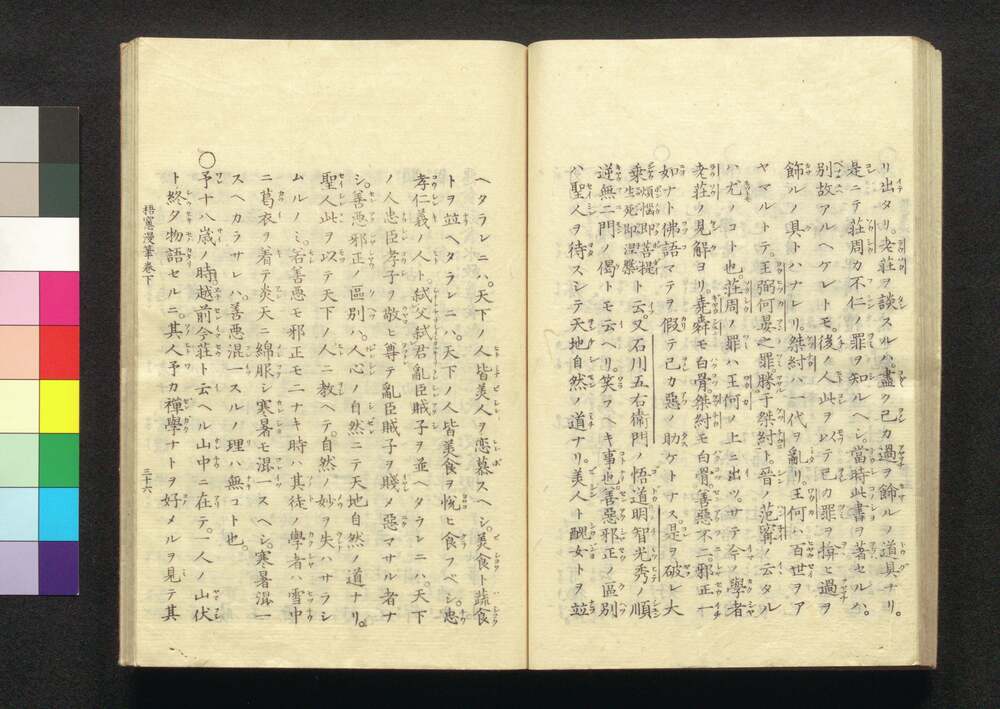 リ出タリ。老荘ヲ談スルハ、盡ク己カ過ヲ飾ルノ道具ナリ。
是ニテ荘周カ不仁ノ罪ヲ知ルヘシ。當時此書ヲ著セルハ、
別故アルヘケレトモ。後ノ人此ヲ以テ己カ罪ヲ揜ヒ過ヲ
飾ルノ具トハナレリ。桀紂ハ一代ヲ亂リ。王何ハ百世ヲア
ヤマルトテ。王弼何晏之罪勝于桀紂ト。晉ノ范甯ノ云タル
ハ尤ノコト也。荘周ノ罪ハ王何ノ上ニ出ツ。サテ今ノ學者
老荘ノ見解ヨリ。堯舜モ白骨。桀紂モ白骨。善惡不二。邪正一
如ナト佛語マテヲ假テ己カ惡ノ助ケトナス。是ヲ破レ大
乗煩惱即菩提生死即涅槃ト云又石川五右衛門ノ悟道明智光秀ノ順
逆無二門ノ偈トモ云ヘリ。笑フヘキ事也。善惡邪正ノ區別
ハ聖人ヲ待スシテ天地自然ノ道ナリ。美人ト醜女トヲ竝
ヘタランニハ。天下ノ人皆美人ヲ恋慕スヘシ。美食ト蔬食
トヲ竝ヘタランニハ。天下ノ人皆美食ヲ悦ヒ食フベシ。忠
孝仁義ノ人ト弑父弑君亂臣賊子ヲ並ヘタランニハ。天下
ノ人忠臣孝子ヲ敬ヒ尊テ亂臣賊子ヲ賤メ惡マサル者ナ
シ。善惡邪正ノ區別ハ。人心ノ自然ニテ天地自然ノ道ナリ。
聖人此ヲ以テ天下ノ人ニ教ヘテ。自然ノ妙ヲ失ハサラシ
ムルノミ。若善惡モ邪正モ二ナキ時ハ其徒ノ學者ハ雪中
ニ葛衣ヲ着テ炎天ニ綿服シ寒暑モ混一スヘシ。寒暑混一
スヘカラサレハ。善惡混一スルノ理ハ無コト也。
○予十八歳ノ時越前今荘ト云ヘル山中ニ在テ。一人ノ山伏
ト終夕物語セルニ。其人予カ禅學ナトヲ好メルヲ見テ其
梧窻漫筆巻下 三十六